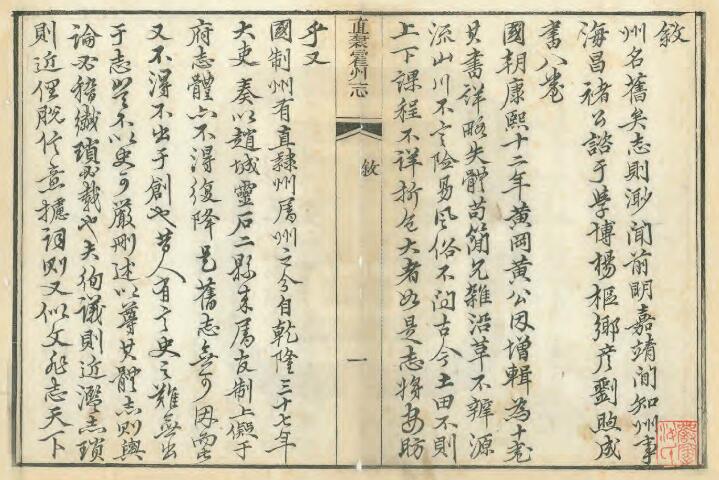 敘
州名舊矣志則渺聞前明嘉靖間知州事
海昌褚公諮于學博楊樞鄉彦劉昫成
書八卷
國朝康熙十二年黄岡黄公因增輯為十卷
其書詳略失體苟簡冗雜沿革不辨源
流山川不言險易風俗不問古今土田不則
上下課程不詳折色大者如是志將安昉
直隸霍州志
敘
一
乎又
國制州有直隸州屬州之分自乾隆三十七年
大吏奏以趙城靈石二縣来屬友制上儗于
府志體亦不得復降是舊志無可因要
又不得不出于創也昔人有言史之難無出
于志豈不以史可嚴刪述以尊其體志則輿
論必稽纖瑣必載也夫徇議則近濫志瑣
則近俚脫意摭詞則又似文非志天下